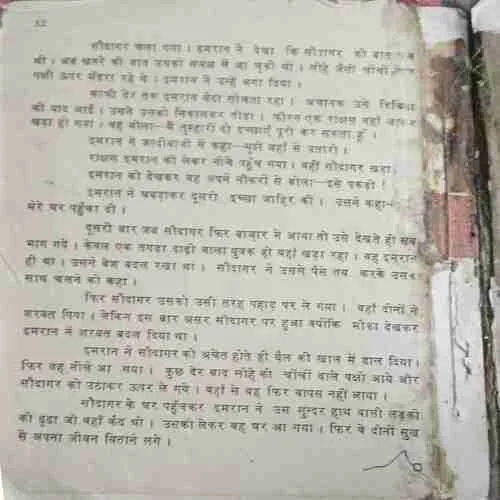 52
सौदागर चला गया । इमरान ने देखा कि सौदागर की बात
थी । अब खतरे की बात उसकी समझ में आ चुकी थी । लोहे जैसी चोंचों
पक्षी ऊपर मंडरा रहे थे । इमरान ने उन्हें भगा दिया ।
काफी देर तक इमरान बैठा सोचता रहा । अचानक उसे
की याद आई । उसने उसको निकालकर तोड़ा । फौरन एक राक्षस वहाँ आकर
खड़ा हो गया । वह बोला—मैं तुम्हारी दो इच्छाएँ पूरी कर सकता हूँ ।
इमरान ने जल्दीबाजी से कहा—मुझे यहाँ से उतारो ।
राक्षस इमरान को लेकर नीचे पहुँच गया । वहीं सौदागर खड़ा
इमरान को देखकर वह अपने नौकरों से बोला—इसे पकड़ो !
इमरान ने घबड़ाकर दूसरी इच्छा जाहिर की । उसने कहा—
मेरे घर पहुँचा दो ।
दूसरी बार जब सौदागर फिर बाजार ने आया तो उसे देखते ही सब
भाग गये । केवल एक तगड़ा दाढ़ी वाला युवक ही वहाँ खड़ा रहा । वह इमरान
ही था । उसने वेश बदल रखा था । सौदागर ने उससे पैसे तय करके उसको
साथ चलने को कहा ।
फिर सौदागर उसको उसी तरह पहाड़ पर ले गया । वहाँ दोनों ने
शरबत पिया । लेकिन इस बार असर सौदागर पर हुआ क्योंकि मौका देखकर
इमरान ने शरबत बदल दिया था ।
इमरान ने सौदागर को अचेत होते ही बैल की खाल में डाल दिया ।
फिर वह नीचे आ गया । कुछ देर बाद लोहे की चोंचों वाले पक्षी आये और
सौदागर को उठाकर ऊपर ले गये । वहाँ से वह फिर वापस नहीं आया ।
सौदागर के घर पहुँचकर इमरान ने उस सुन्दर हाथ वाली लड़की
को ढूंढा जो वहाँ कैद थी । उसको लेकर वह घर आ गया । फिर वे दोनों सुख
से अपना जीवन बिताने लगे ।